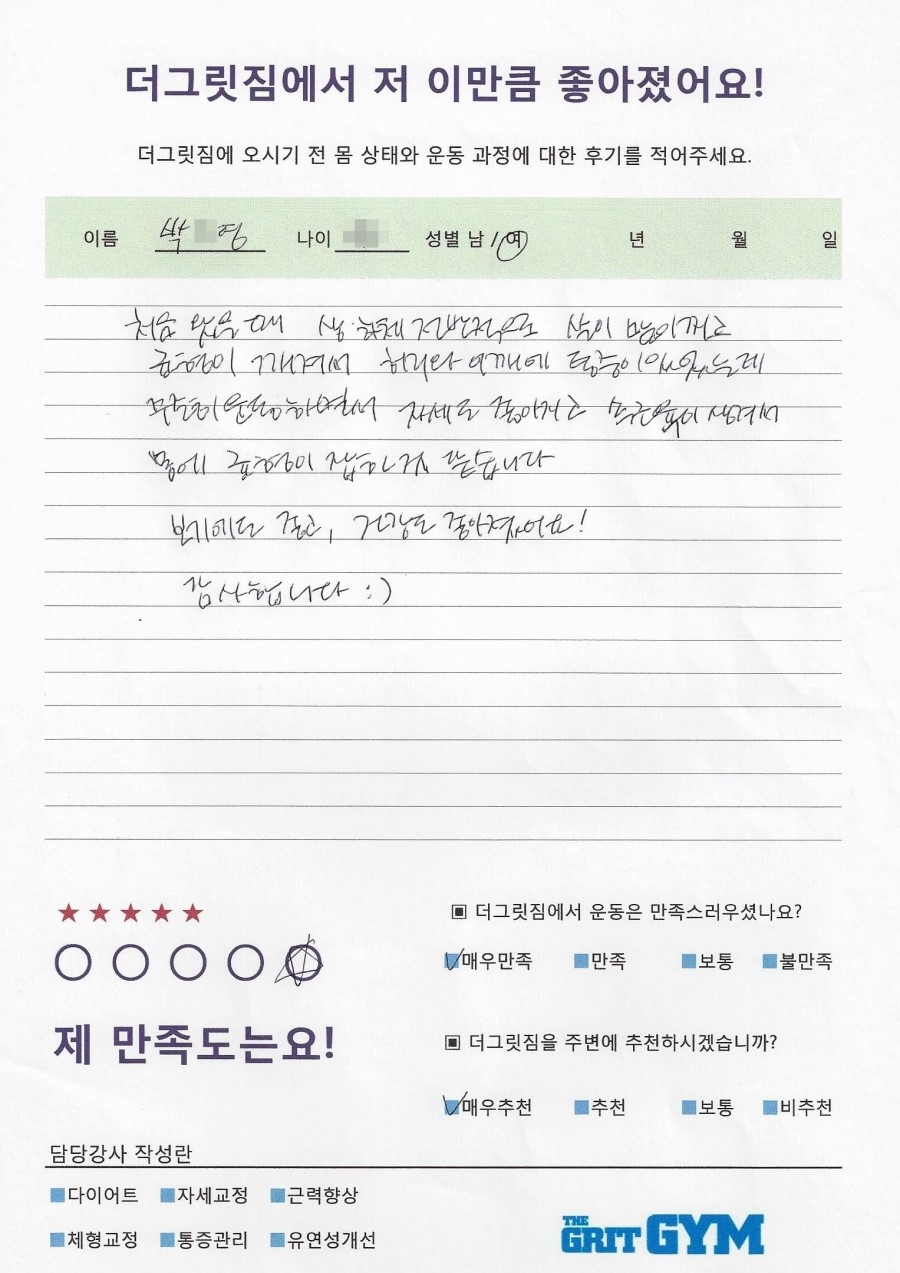 더그릿짐에서 저 이만큼 좋아졌어요!
더그릿짐에 오시기 전 몸 상태와 운동 과정에 대한 후기를 적어주세요.
이름 박 영 나이 성별 남 / 여 년 월 일
처음 왔을 때 상·하체 전반적으로 살이 많이찌고
균형이 깨져서 허리와 어깨에 통증이 있었는데
꾸준히 운동하면서 자세도 좋아지고 잔근육이 생겨서
몸에 균형이 잡힌거 같습니다
보기에도 좋고, 건강도 좋아졌어요!
감사합니다 :)
★★★★★
제 만족도는요!
▣ 더그릿짐에서 운동은 만족스러우셨나요?
매우만족 만족 보통 불만족
▣ 더그릿짐을 주변에 추천하시겠습니까?
매우추천 추천 보통 비추천
담당강사 작성란
다이어트 자세교정 근력향상
체형교정 통증관리 유연성개선
THE GRIT GYM